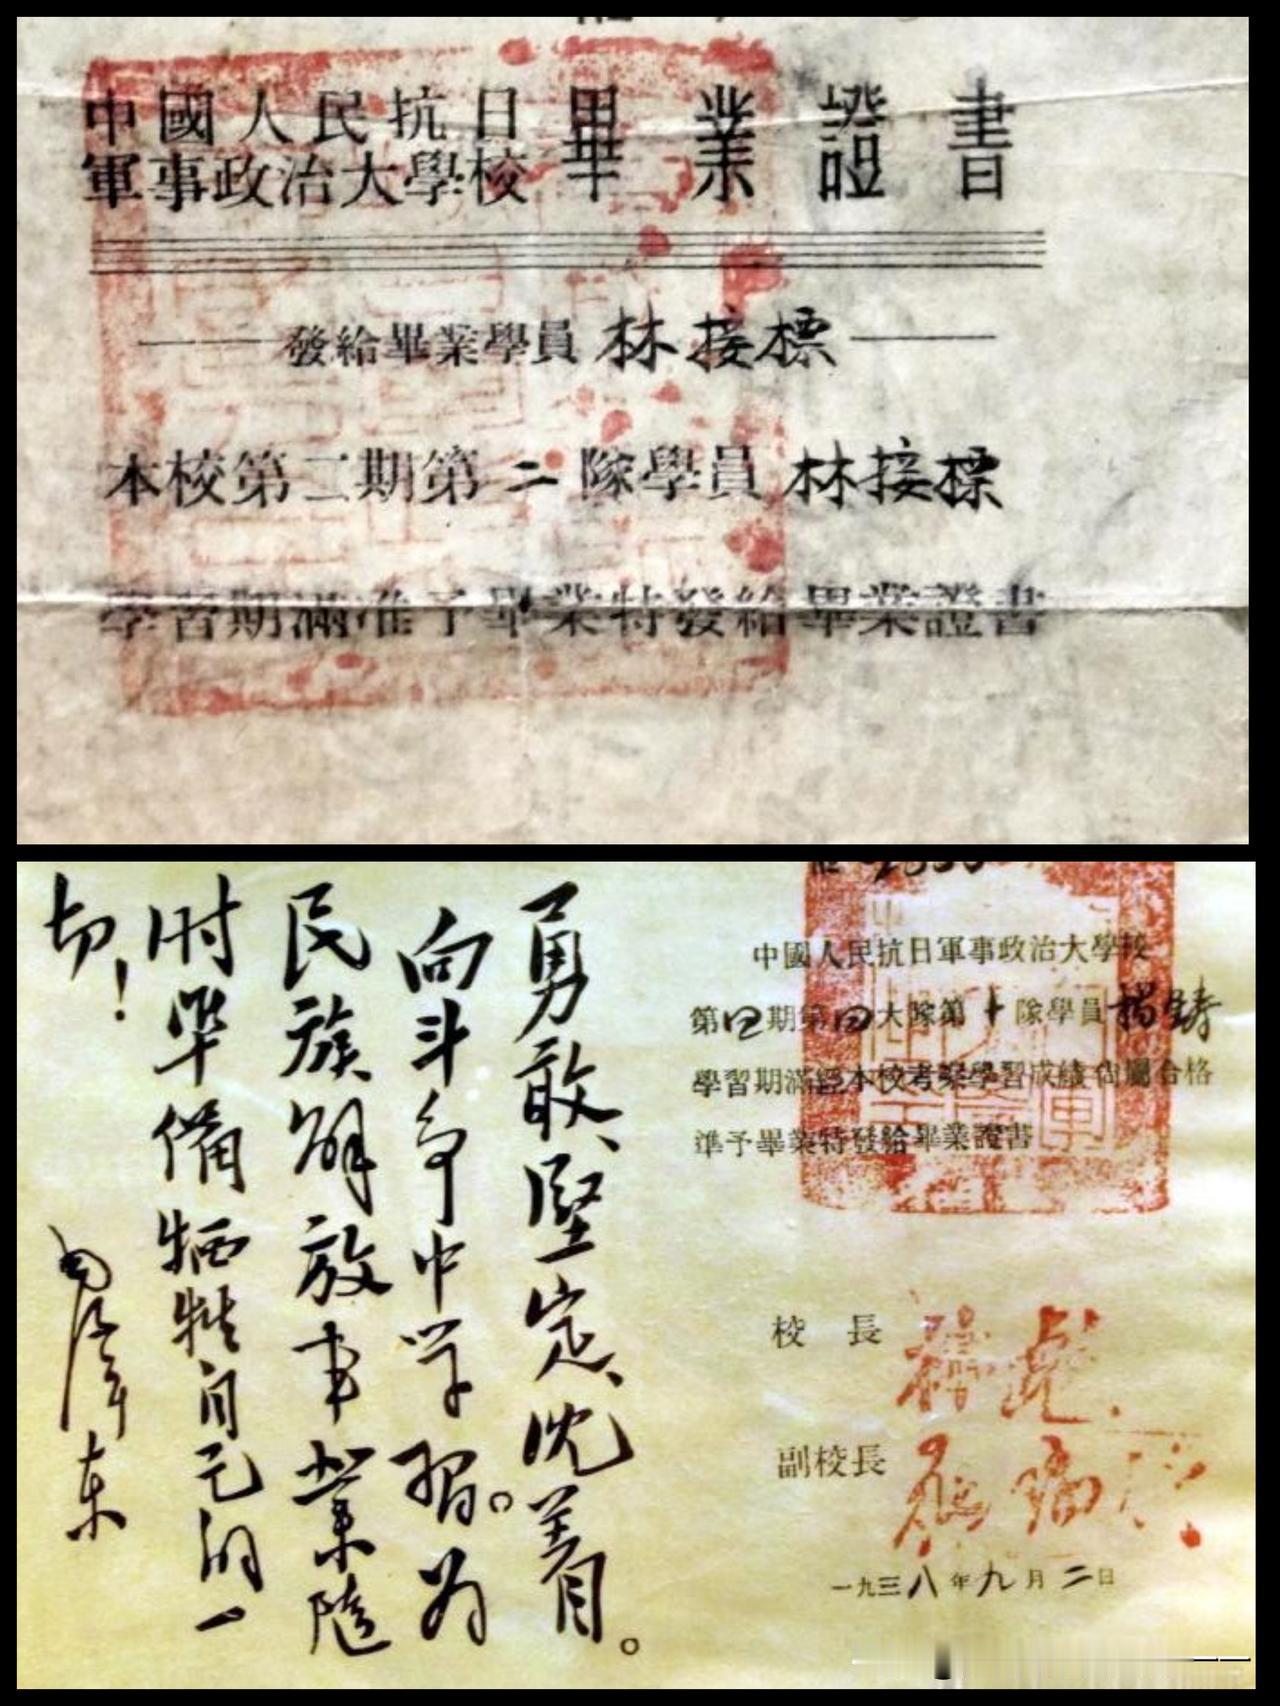 中國人民抗日
軍事政治大學校
畢業證書
發給畢業學員 林接標
本校第二期第二隊學員 林接標
學習期滿准予畢業特發給畢業證書
勇敢、堅定、沈着。
向斗争中学習。为
民族解放事業隨
时準備牺牲自己的一
切！
毛澤东
中國人民抗日軍事政治大學校
第四期第四大隊第十隊學員楊鋳
學習期滿經本校考察學習成績尚屬合格
準予畢業特發給畢業證書
校長 林彪
副校長 羅瑞卿
一九三八年九月二日